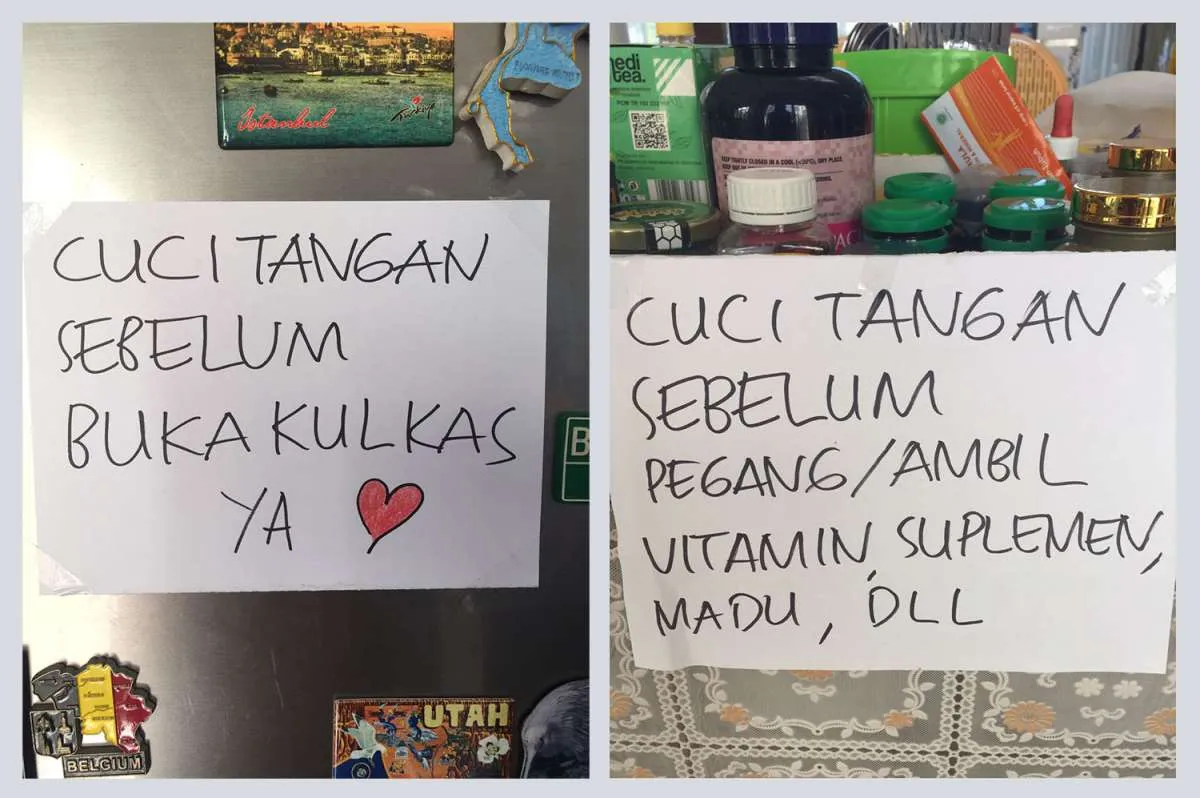 Istanbul
CUCI TANGAN
SEBELUM
BUKA KULKAS
YA
B
BELGIUM
UTAH
edi
tea.
KEEP TIGHTLY CLOSED IN A COOL (<30°C), DRY PLACE.
CUCI TANGAN
SEBELUM
PEGANG/AMBIL
VITAMIN, SUPLEMEN,
MADU, DLL